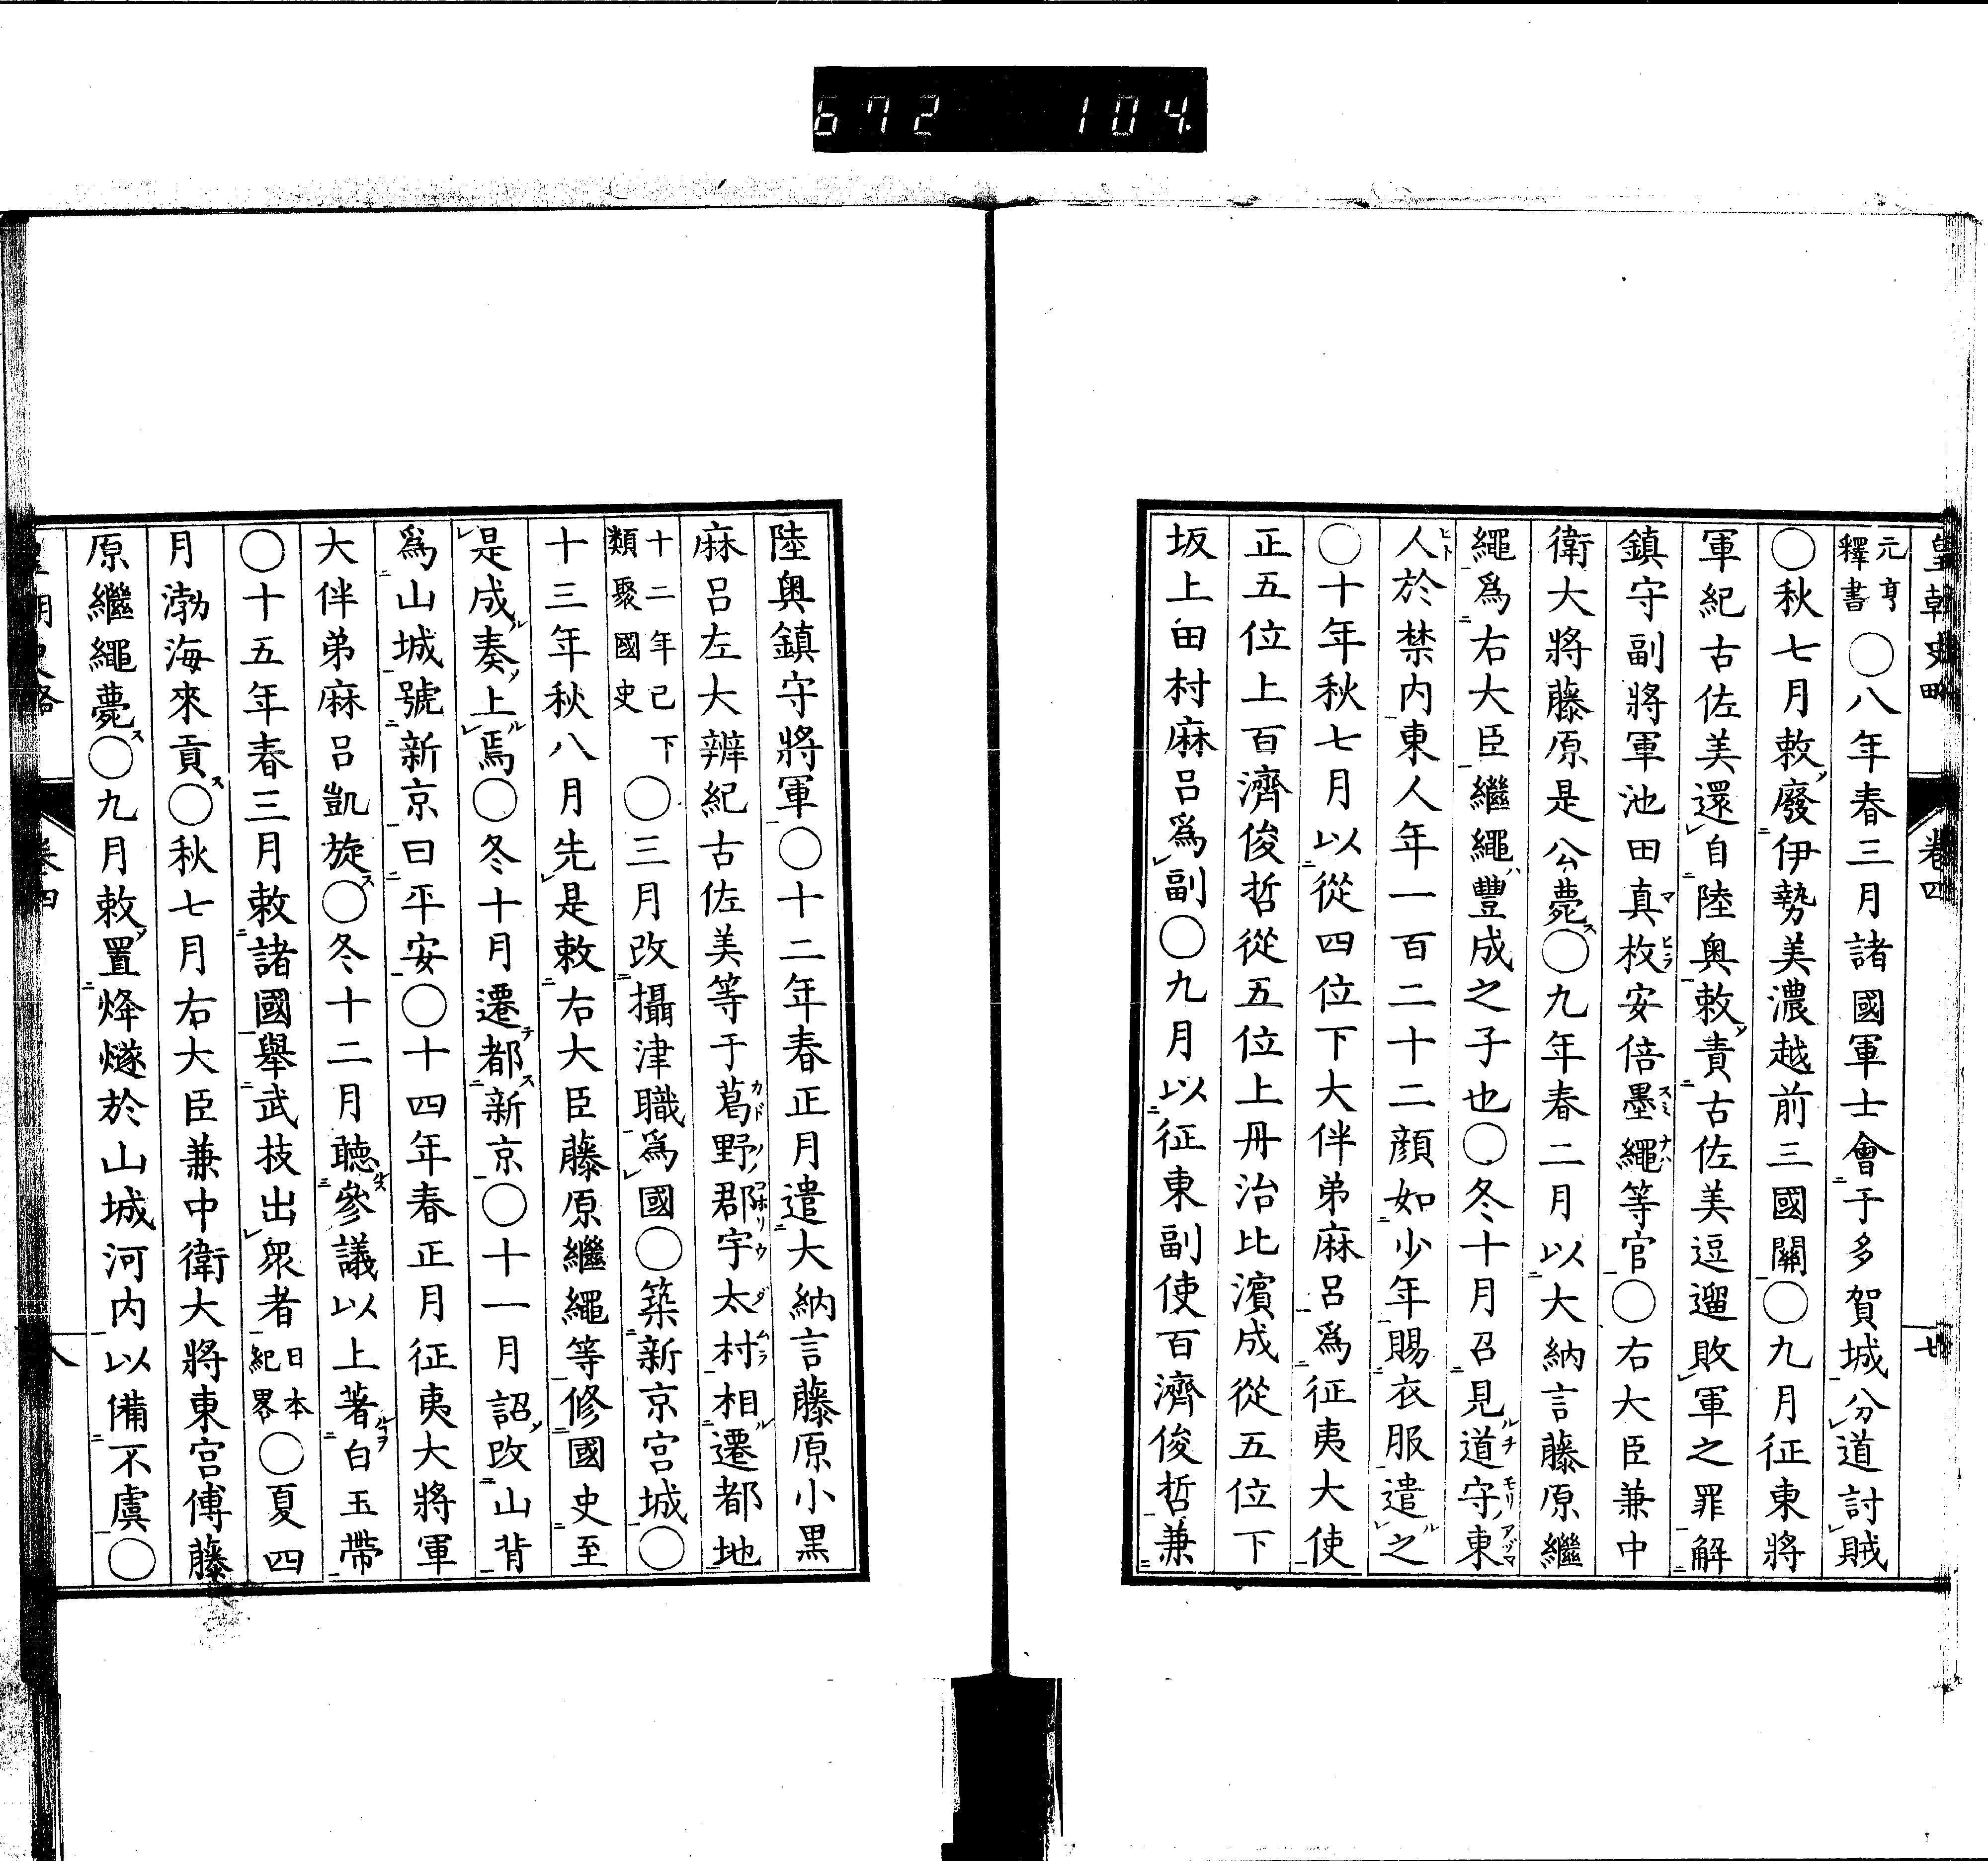 672 104.
皇朝史略 卷四 七
元亨釋書○八年春三月諸國軍士會于多賀城分道討賊
○秋七月敕廢伊勢美濃越前三國關○九月征東將
軍紀古佐美還自陸奧敕責古佐美逗遛敗軍之罪解
鎮守副將軍池田真枚安倍墨繩等官○右大臣兼中
衛大將藤原是公薨○九年春二月以大納言藤原繼
繩爲右大臣繼繩豐成之子也○冬十月召見道守東
人於禁内東人年一百二十二顔如少年賜衣服遣之
○十年秋七月以從四位下大伴弟麻呂爲征夷大使
正五位上百濟俊哲從五位上丹治比濱成從五位下
坂上田村麻呂爲副○九月以征東副使百濟俊哲兼
陸奧鎮守將軍○十二年春正月遣大納言藤原小黒
麻呂左大辨紀古佐美等于葛野郡宇太村相遷都地
十二年已下類聚國史○三月改攝津職爲國○築新京宮城○
十三年秋八月先是敕右大臣藤原繼繩等修國史至
是成奏上焉○冬十月遷都新京○十一月詔改山背
爲山城號新京曰平安○十四年春正月征夷大將軍
大伴弟麻呂凱旋○冬十二月聽參議以上著白玉帶
○十五年春三月敕諸國舉武技出衆者日本紀畧○夏四
月渤海來貢○秋七月右大臣兼中衛大將東宮傅藤
原繼繩薨○九月敕置烽燧於山城河内以備不虞○
卷四 八